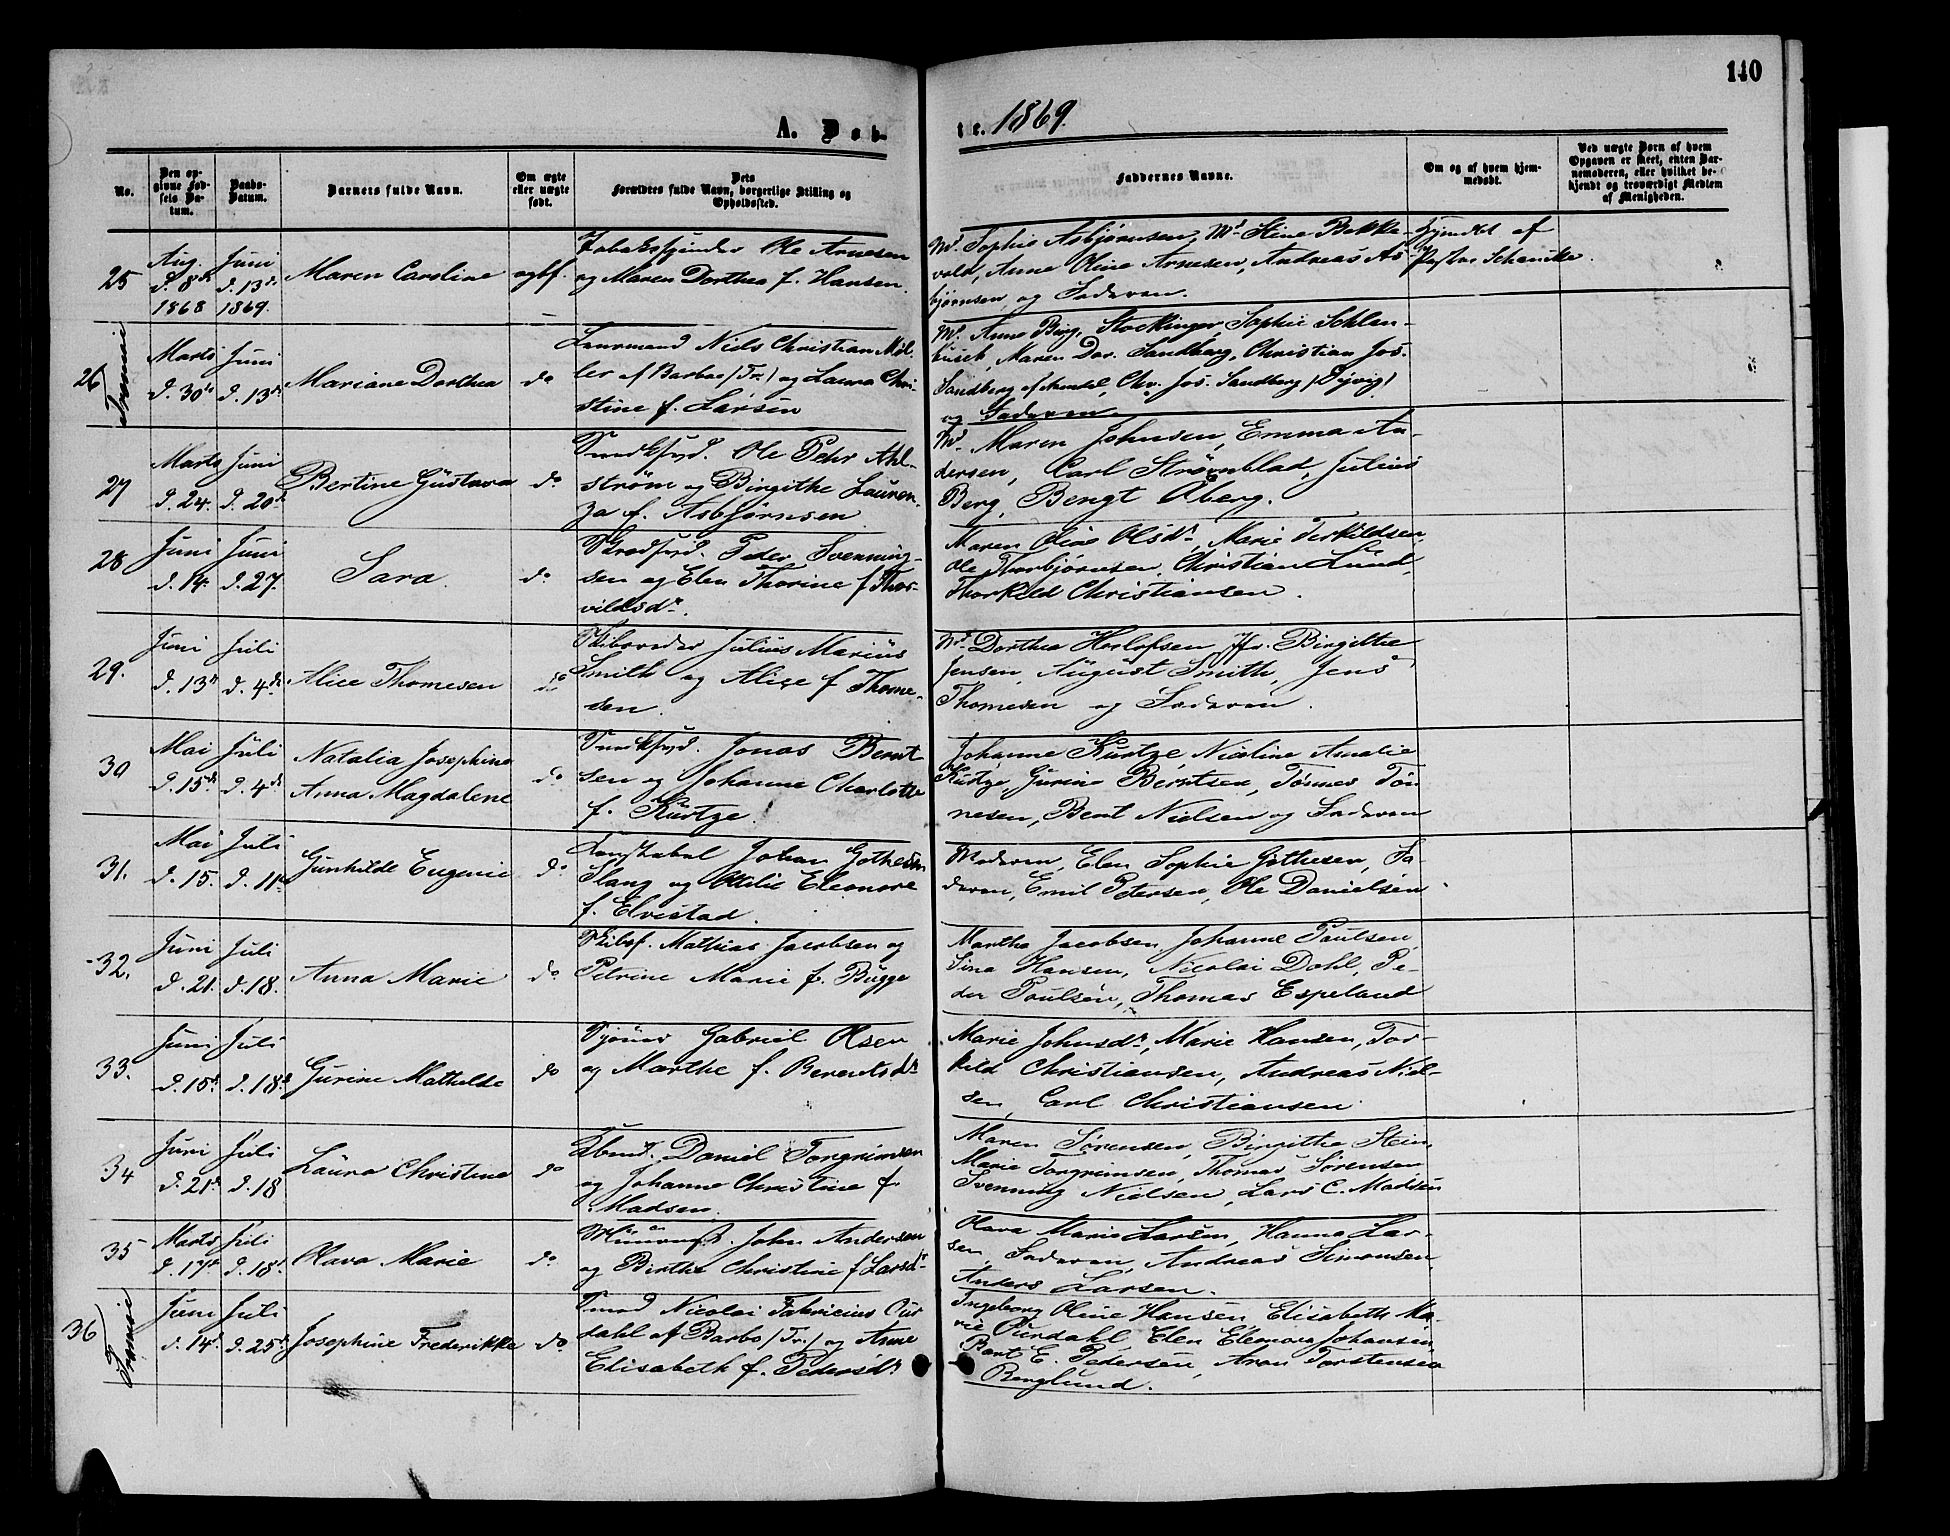 140
A. Døb-
te. 1869.
No.
Den op-
givne Fød-
sels Da-
tum.
Daabs-
Datum.
Barnets fulde Navn.
Om ægte
eller uægte
født.
Dets
Forældres fulde Navn, borgerlige Stilling og
Opholdssted.
Faddernes Navne.
Om og af hvem hjem-
medøbt.
Ved uægte Børn af hvem
Opgaven er skeet, enten Bar-
nemoderen, eller hvilket be-
kjendt og troværdigt Medlem
af Menigheden.
25
Aug.
d. 8de
1868
Juni
d. 13de
1869.
Maren Caroline
ægtf.
Ole Arnesen
og Maren Dorthea f. Hansen.
Md. Sophie Asbjørnsen, Md. Stine Bakke-
vold, Anne Oline Arnesen, Andreas As-
bjørnsen og Faderen.
Hjemdbt af
Pastor Schancke.
26
Tromøe
Marts
d. 30te
Juni
d. 13de
Mariane Dorthea
do
Laurmand Niels Christian Møl-
ler af Barboe (Tr.) og Laura Chri-
stine f. Larsen
Md. Anne Birg. Stockinger, Sophie Schlan-
busch, Maren Dor. Sandberg, Christian Jos.
Sandberg af Arendal, Chr. Jos. Sandberg (Pijvig)
og Faderen
27
Marts
d. 24.
Juni
d. 20de
Bertine Gustava
do
Ole Pehr Ahl-
strøm og Birgithe Lauren-
za f. Asbjørnsen
Md. Maren Johnsen, Emma An-
dersen, Carl Strømblad, Julius
Berg, Bengt Åberg.
28
Juni
d. 14.
Juni
d. 27.
Sara.
do
Peder Svenning-
sen og Elen Thorine f. Thor-
vildsdr.
Maren Olea Olsdr, Marie Terkildsen
Ole Thorbjørnsen, Christian Lund,
Thorkild Christiansen.
29.
Juni
d. 13de
Juli
d. 4de
Alice Thomesen
do
Skibsreder Julius Marius
Smith og Alice f. Thome-
sen.
Md. Dorthea Herlofsen, Jfr. Birgitte
Jensen, August Smith, Jens
Thomesen og Faderen.
30
Mai
d. 15de
Juli
d. 4de
Natalia Josephine
Anna Magdalene
do
Jonas Bernt-
sen og Johanne Charlotte
f. Kurtze.
Johanne Kurtze, Nicoline Amalie
Kurtze, Gurine Berntsen, Tønnes Tøn-
nesen, Bent Nielsen og Faderen
31.
Mai
d. 15.
Juli
d. 11te
Gunhilde Eugenie
do
Konstabel Johan Gothesen
Stang og Ottilie Eleonore
f. Elvestad.
Moderen, Elen Sophie Gothesen, Fa-
deren, Emil Petersen, Ole Danielsen
32.
Juni
d. 21.
Juli
d. 18.
Anna Marie
do
Skibsf. Mathias Jacobsen og
Petrine Marie f. Bugge
Martha Jacobsen, Johanne Paulsen,
Sina Hansen, Nicolai Dahl, Pe-
der Poulsen, Thomas Espeland
33.
Juni
d. 15de
Juli
d. 18de
Gurine Mathilde
do
Sjømd Gabriel Olsen
og Marthe f. Berentsdr
Marie Johnsdr, Marie Hansen, Tor-
kild Christiansen, Andreas Niel-
sen, Carl Christiansen
34
Juni
d. 21de
Juli
d. 18
Laura Christine
do
Daniel Torgrimsen
og Johanne Christine f.
Madsen.
Maren Sørensen, Birgithe Stein,
Marie Torgrimsen, Thomas Sørensen
Svenning Nielsen, Lars C. Madsen
35
Marts
d. 17de
Juli
d. 18de
Olava Marie
do
John Andersen
og Birthe Christine f. Larsdr
Olava Marie Larsen, Hanna Lar-
sen, Faderen, Andreas Simonsen
Anders Larsen.
36
Tromøe
Juni
d. 14de
Juli
d. 25de
Josephine Frederikke
do
Nicolai Fabricius Our-
dahl af Barbo (Tr.) og Anne
Elisabeth f. Pedersdr
Ingeborg Oline Hansen, Elisabeth Ma-
rie Ourdahl, Elen Elenora Johansen,
Bent E. Pedersen, Aron Torstensen
Berglund.